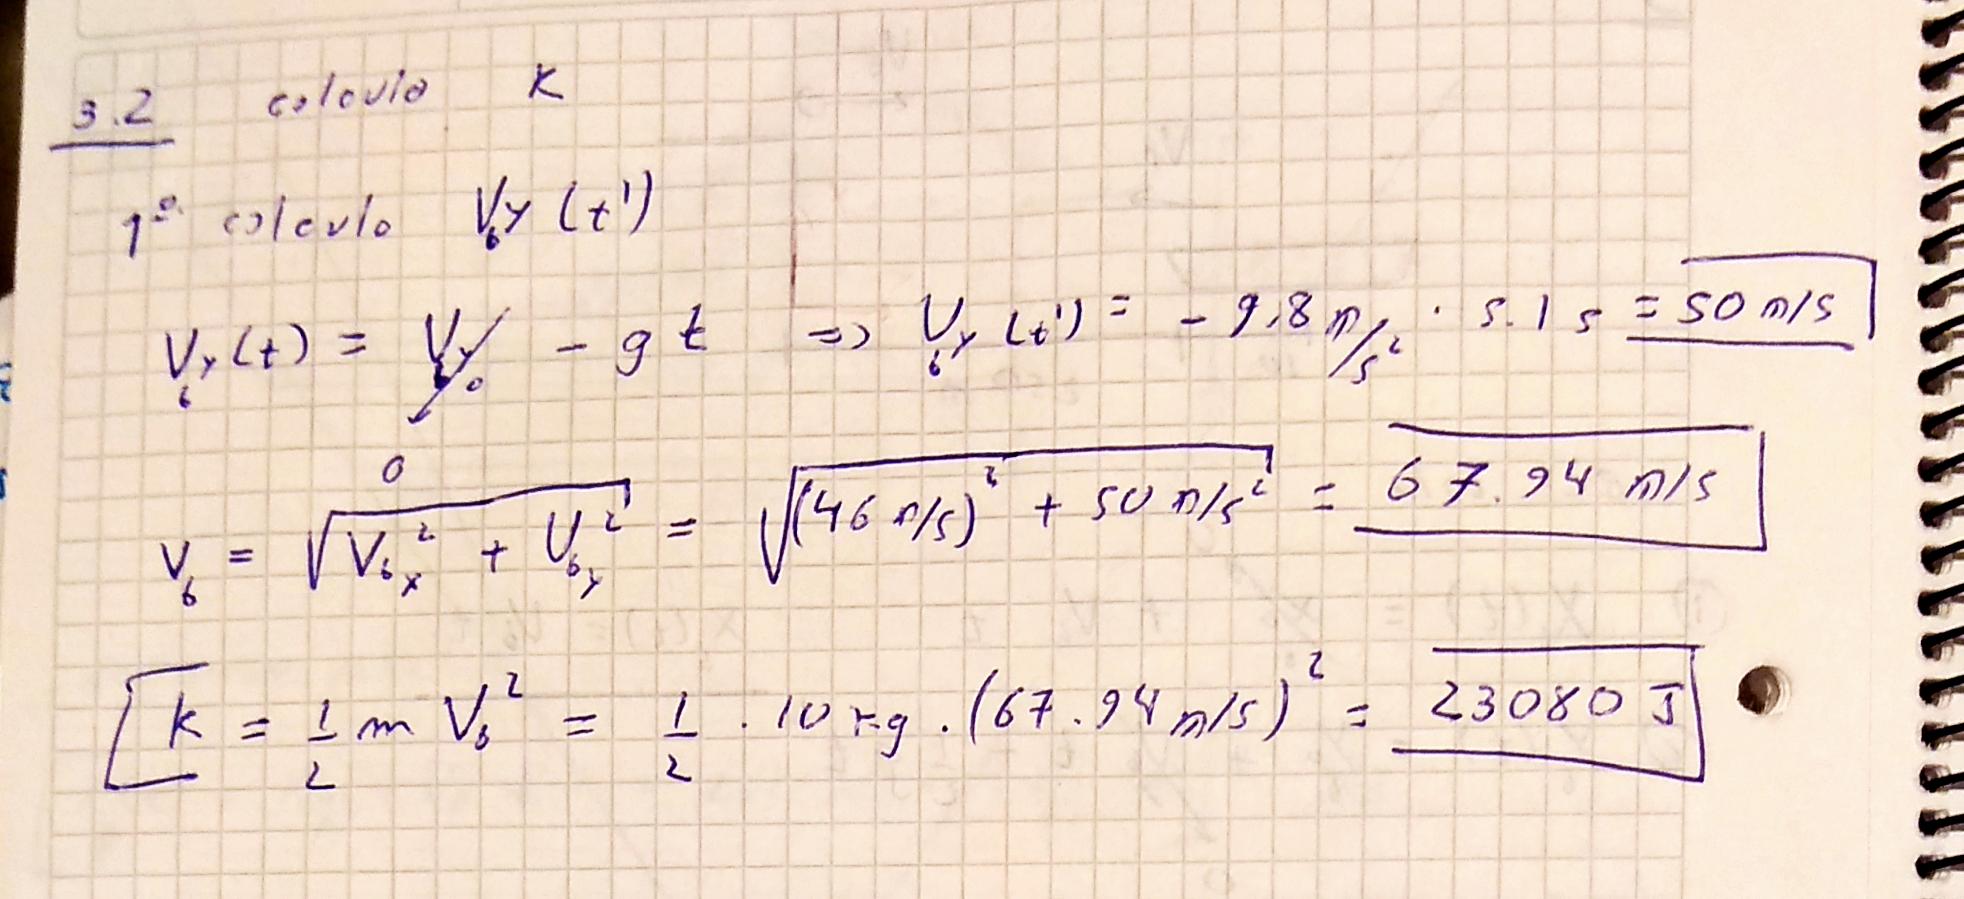 3.2 calculo K
1º calculo V_by (t')
V_by (t) = V_by₀ - g t => V_by (t') = - 9,8 m/s² · 5.1 s = 50 m/s
0
V_b = √(V_bx² + V_by²) = √((46 m/s)² + 50 m/s²) = 67.94 m/s
K = 1/2 m V_b² = 1/2 · 10 kg · (67.94 m/s)² = 23080 J